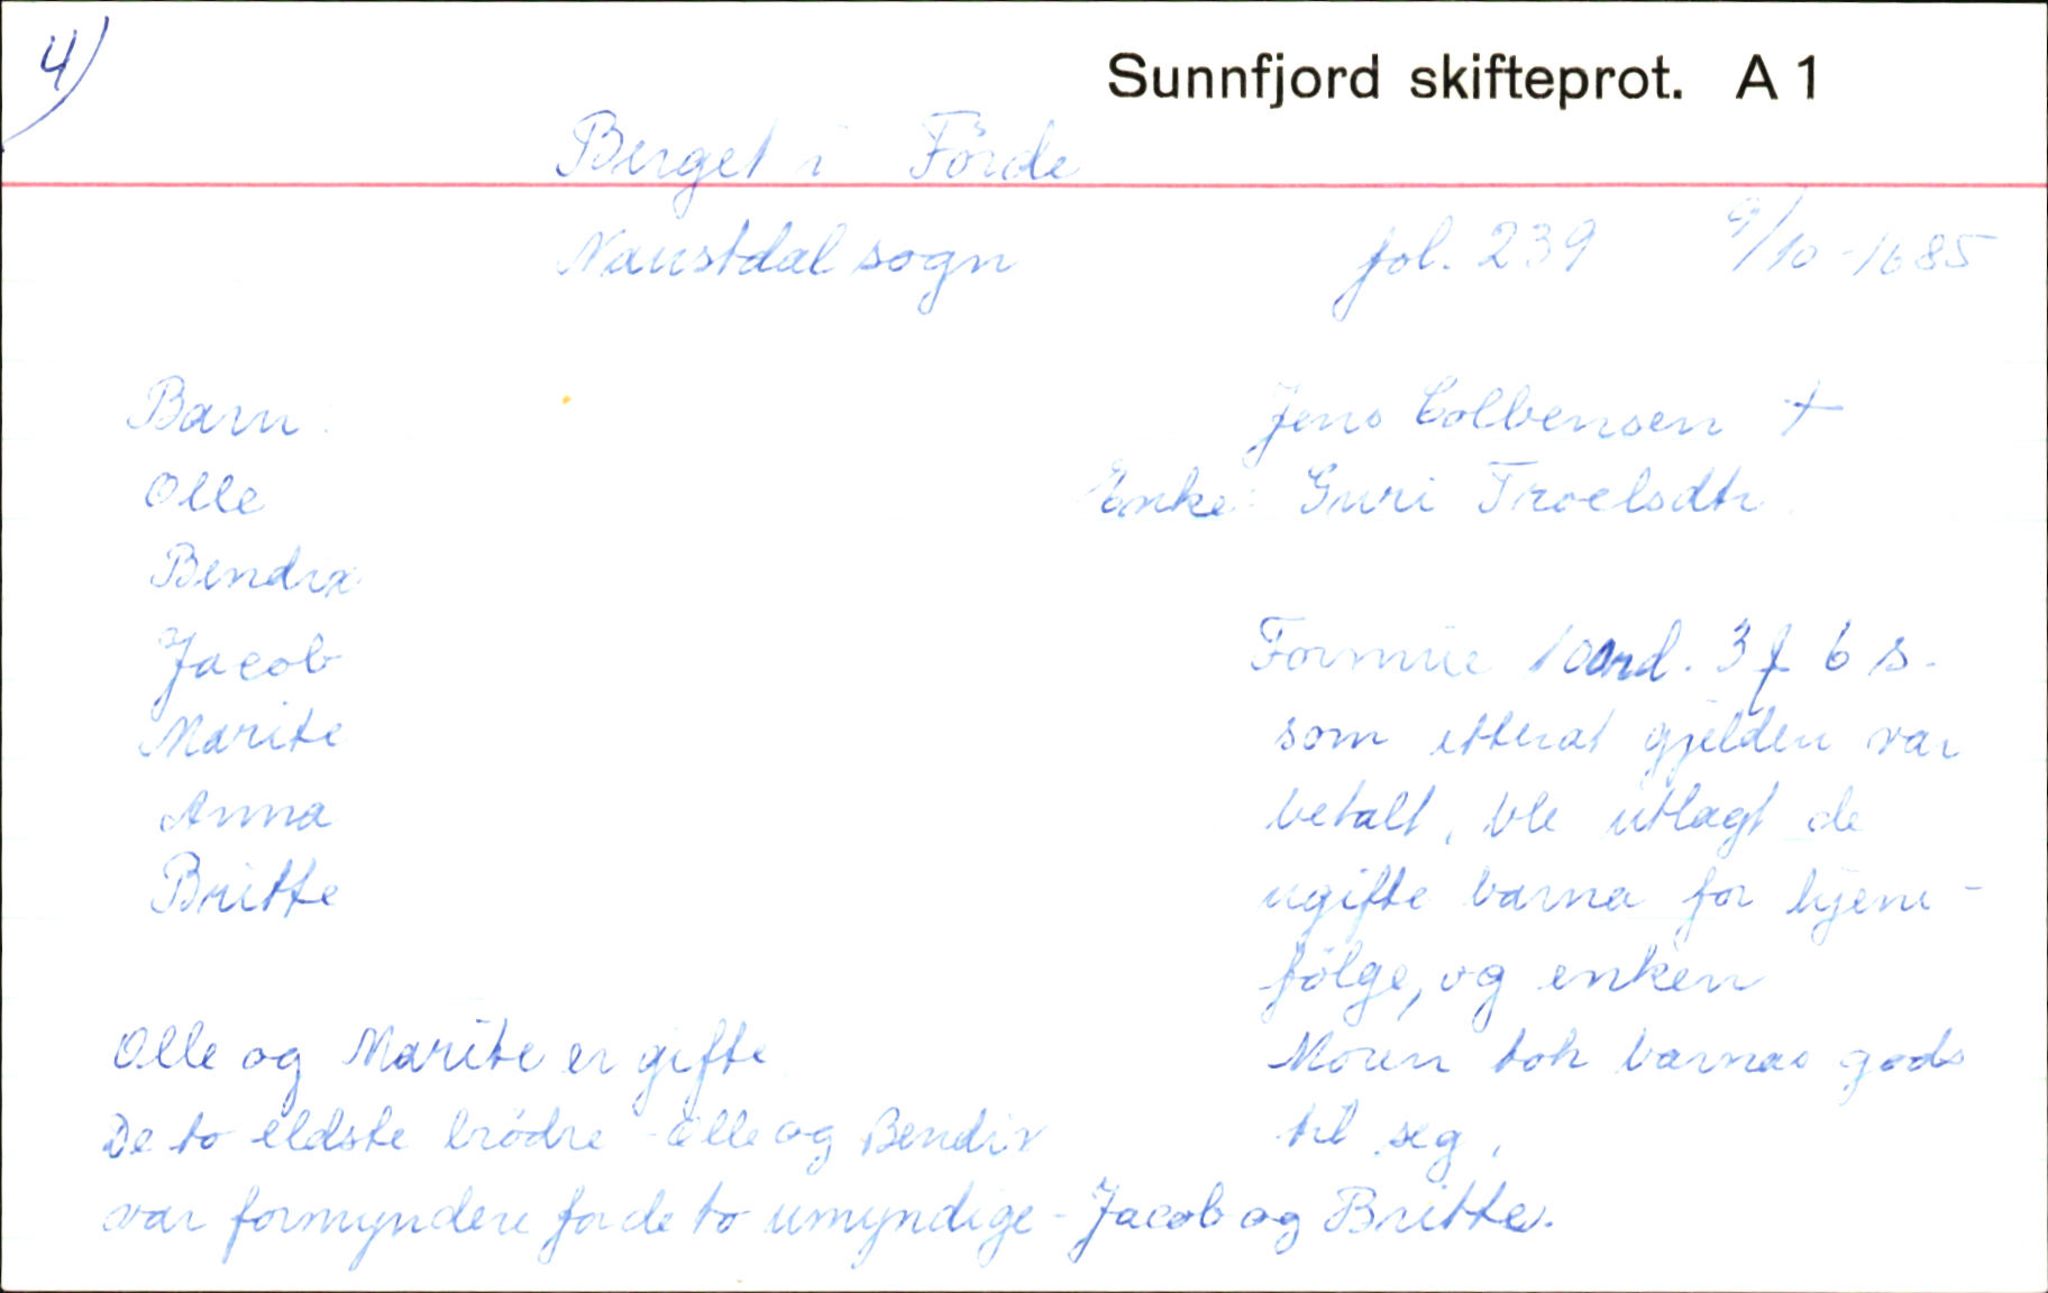 4)
Sunnfjord skifteprot. A 1
Berget i Förde
Naustdal sogn fol. 239 9/10-1685
Barn:
Olle
Bendix
Jacob
Marite
Anna
Britte
Jens Colbensen +
Enke: Guri Troelsdtr.
Formue 10 rd. 3 f 6 s.
som etterat gjelden var
betalt, ble utlagt de
ugifte barna for hjem-
fölge, og enken
Moren tok barnas gods
til seg.
Olle og Marite er gifte
De to eldste brödre - Olle og Bendix
var formyndere for de to umyndige - Jacob og Britte.